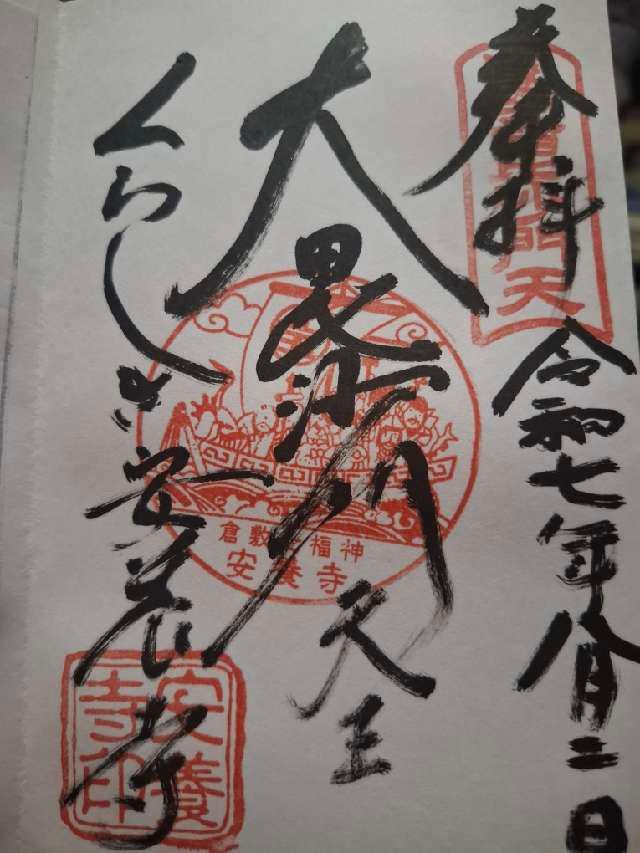 奉拝
令和七年八月二日
大毘沙門天王
くらしき安養寺
倉敷 福神
安養寺
安養寺印